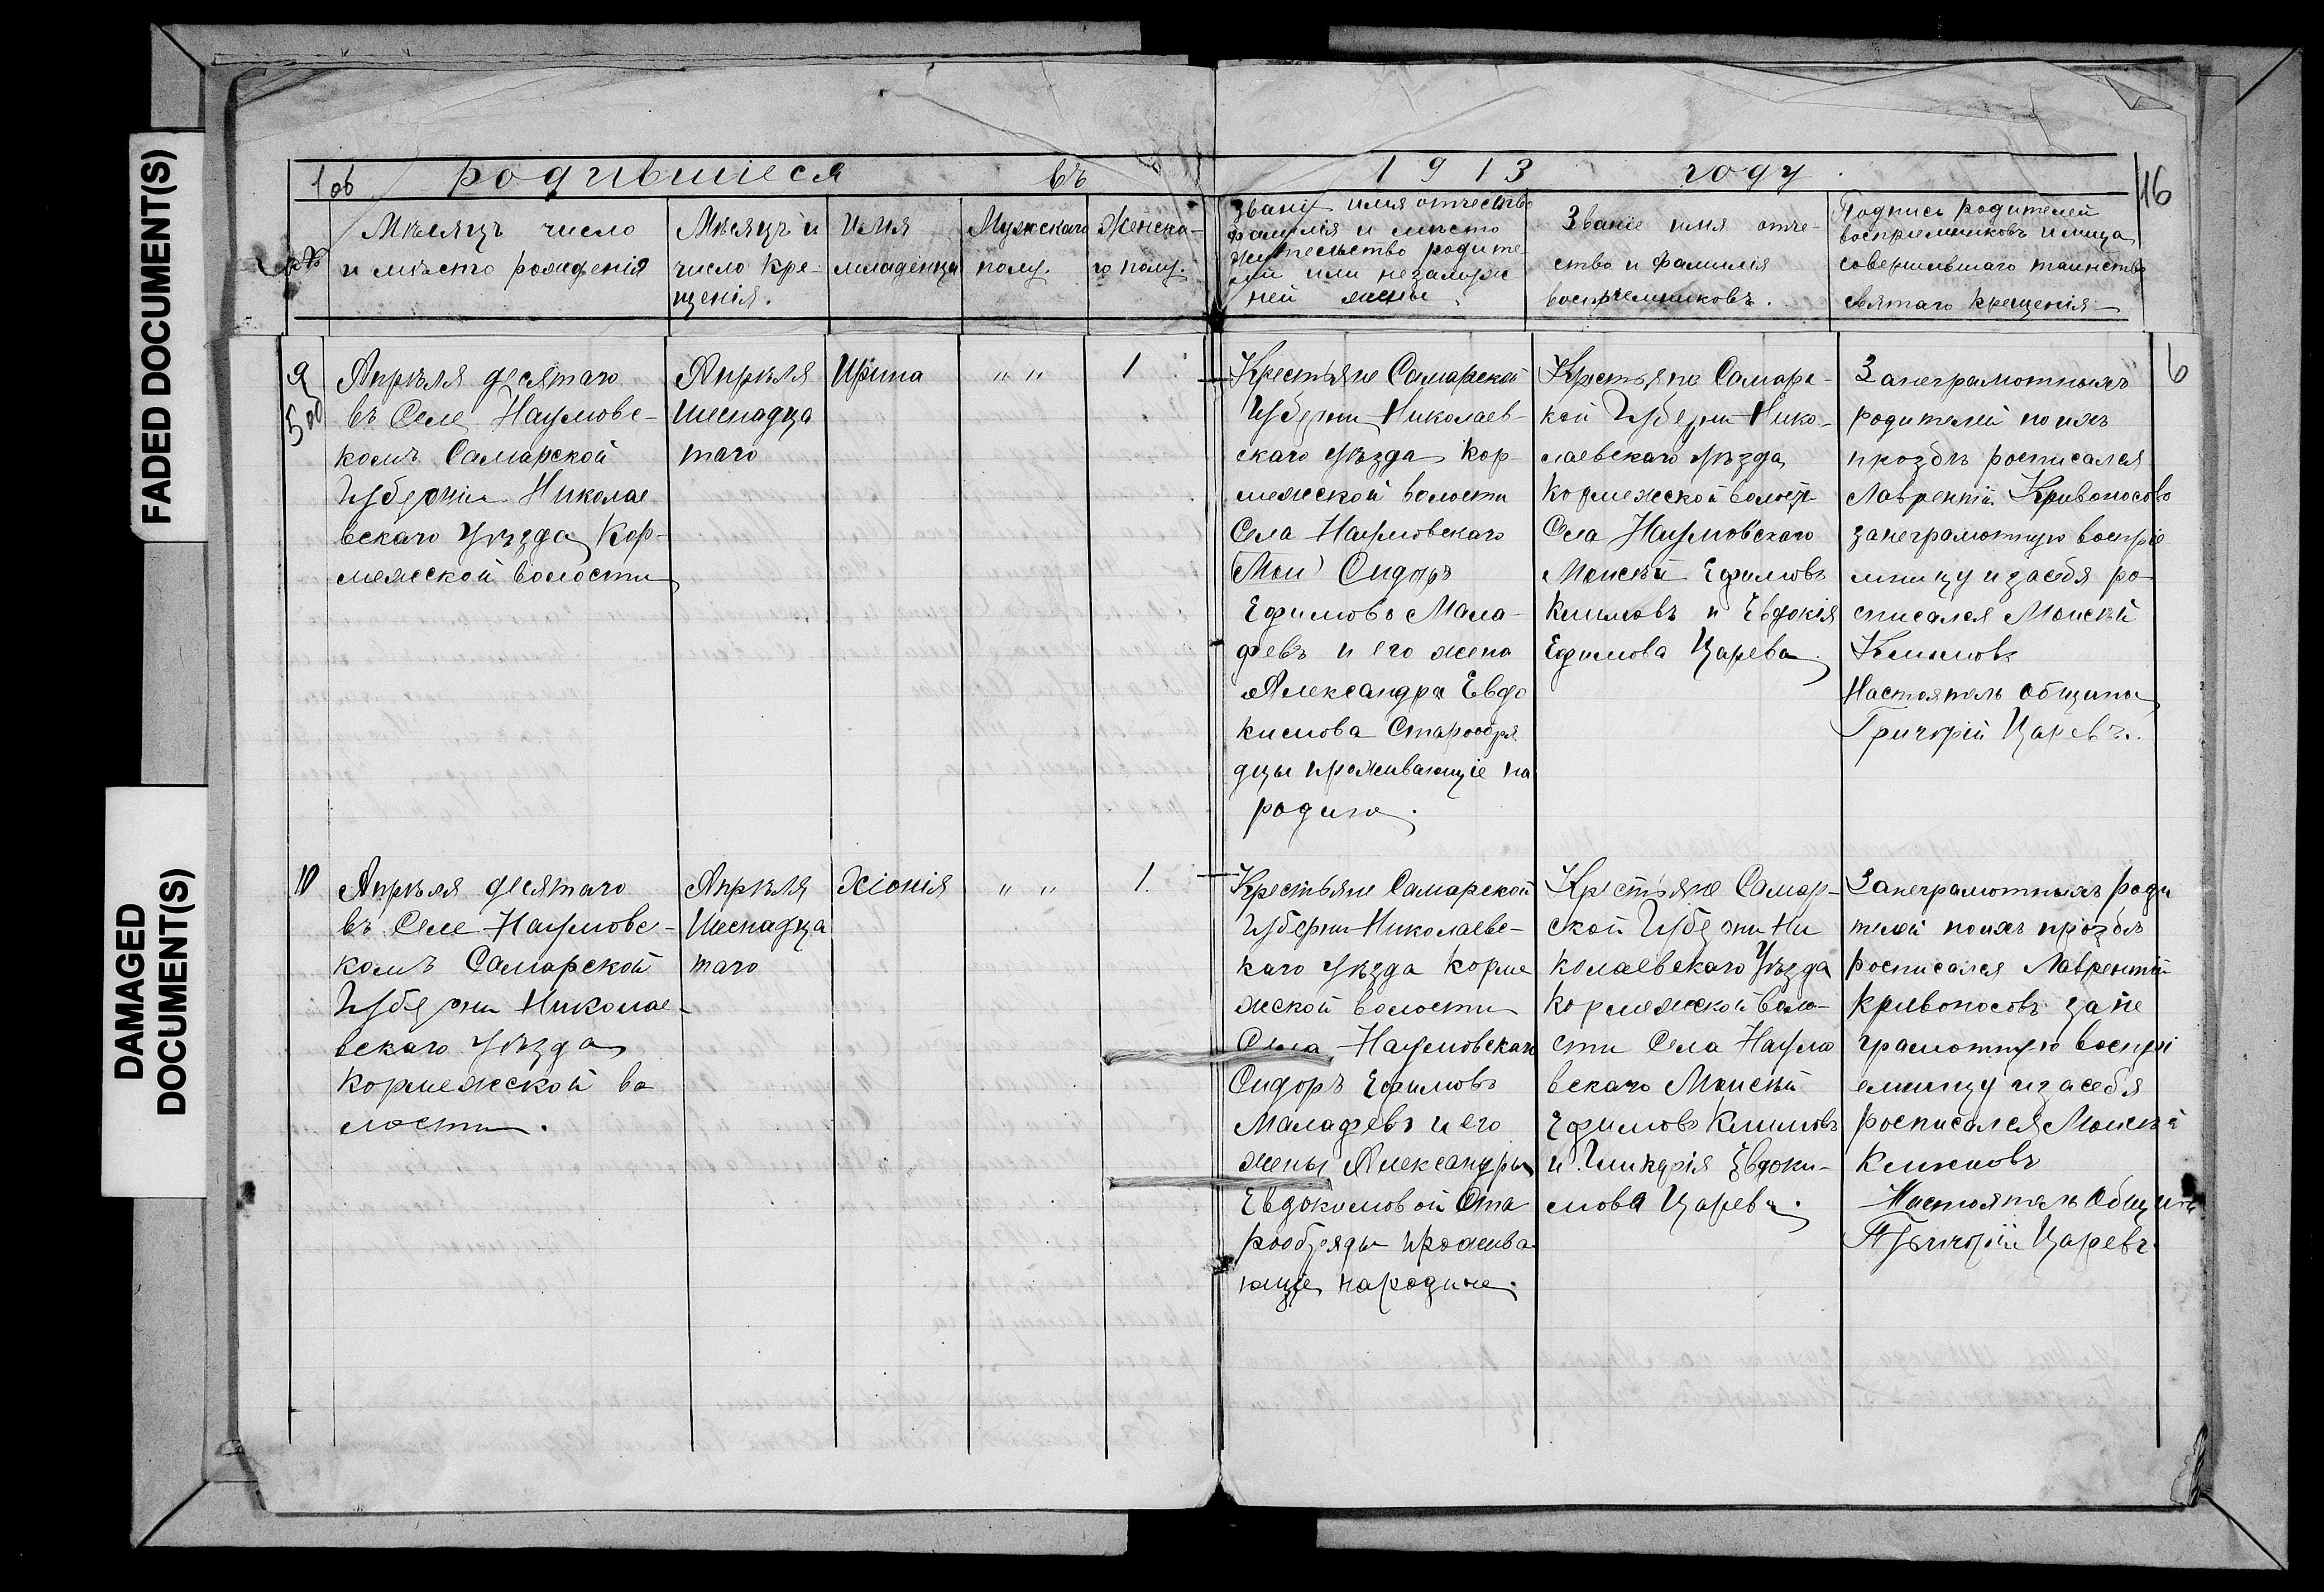 FADED DOCUMENT(S)
DAMAGED
DOCUMENT(S)
1об родившиеся въ
1913 году.
116
Мѣсяцъ число
и мѣсто рожденія
Мѣсяцъ и
число кре-
щенія.
имя
младенца
Мужскаго
полу.
Женска-
го полу.
Званіе имя отчество
фамилія и мѣсто
жительство родите
лей или незамуж
ней жены.
Званіе имя отче-
ство и фамилія
воспріемниковъ.
Подпись родителей
воспріемниковъ и лица
совершившаго таинство
святаго крещенія
9
500
Апрѣля десятаго
въ Селе Наумовс-
комъ Самарской
Губерніи Николае
вскаго Уѣзда Кор-
межской волости
Апрѣля
Шеснадца
таго
Ирина
" "
1
Крестьяне Самарской
Губерни Николаев-
скаго Уѣзда Кор-
межской волости
Села Наумовскаго
Сидоръ
Ефимовъ Мала-
феевъ и его жена
Александра Евдо
кимова Старообря
дцы проживающіе на
родине.
Крестьяне Самарс-
кой Губерни Нико-
лаевскаго Уѣзда
Кормежской волости
Села Наумовскаго
Моисѣй Ефимовъ
Климовъ и Евдокія
Ефимова Царева
Занеграмотныхъ
родителей по ихъ
прозбѣ росписался
Лаврентій Кривоносовъ
занеграмотную воспріе
мницу и засебя ро-
списался Моисѣй
Климовъ
Настоятель общины
Григорій Царевъ.
6
10
Апрѣля десятаго
въ Селе Наумовс-
комъ Самарской
Губерни Николае-
вскаго Уѣзда
Кормежской во
лости.
Апрѣля
Шеснадца
таго
Хіонія
" "
1
Крестьяне Самарской
Губерни Николаевс-
каго Уѣзда Корме
жской волости
Села Наумовскаго
Сидоръ Ефимовъ
Малафевъ и его
жены Александры
Евдокимовой Ста
рообрядцы прожива
ющіе народине.
Крестьяне Самар-
ской Губерни Ни
колаевскаго Уѣзда
Кормежской воло-
сти Села Наумо
вскаго Моисѣй
Ефимовъ Климовъ
и Евдоки-
мова Царева.
Занеграмотныхъ роди
телей поихъ прозбѣ
росписался Лаврентій
Кривоносовъ зане
грамотную воспрі
емницу и засебя
росписался Моисѣй
Климовъ
Настоятель Общины
Григорій Царевъ.